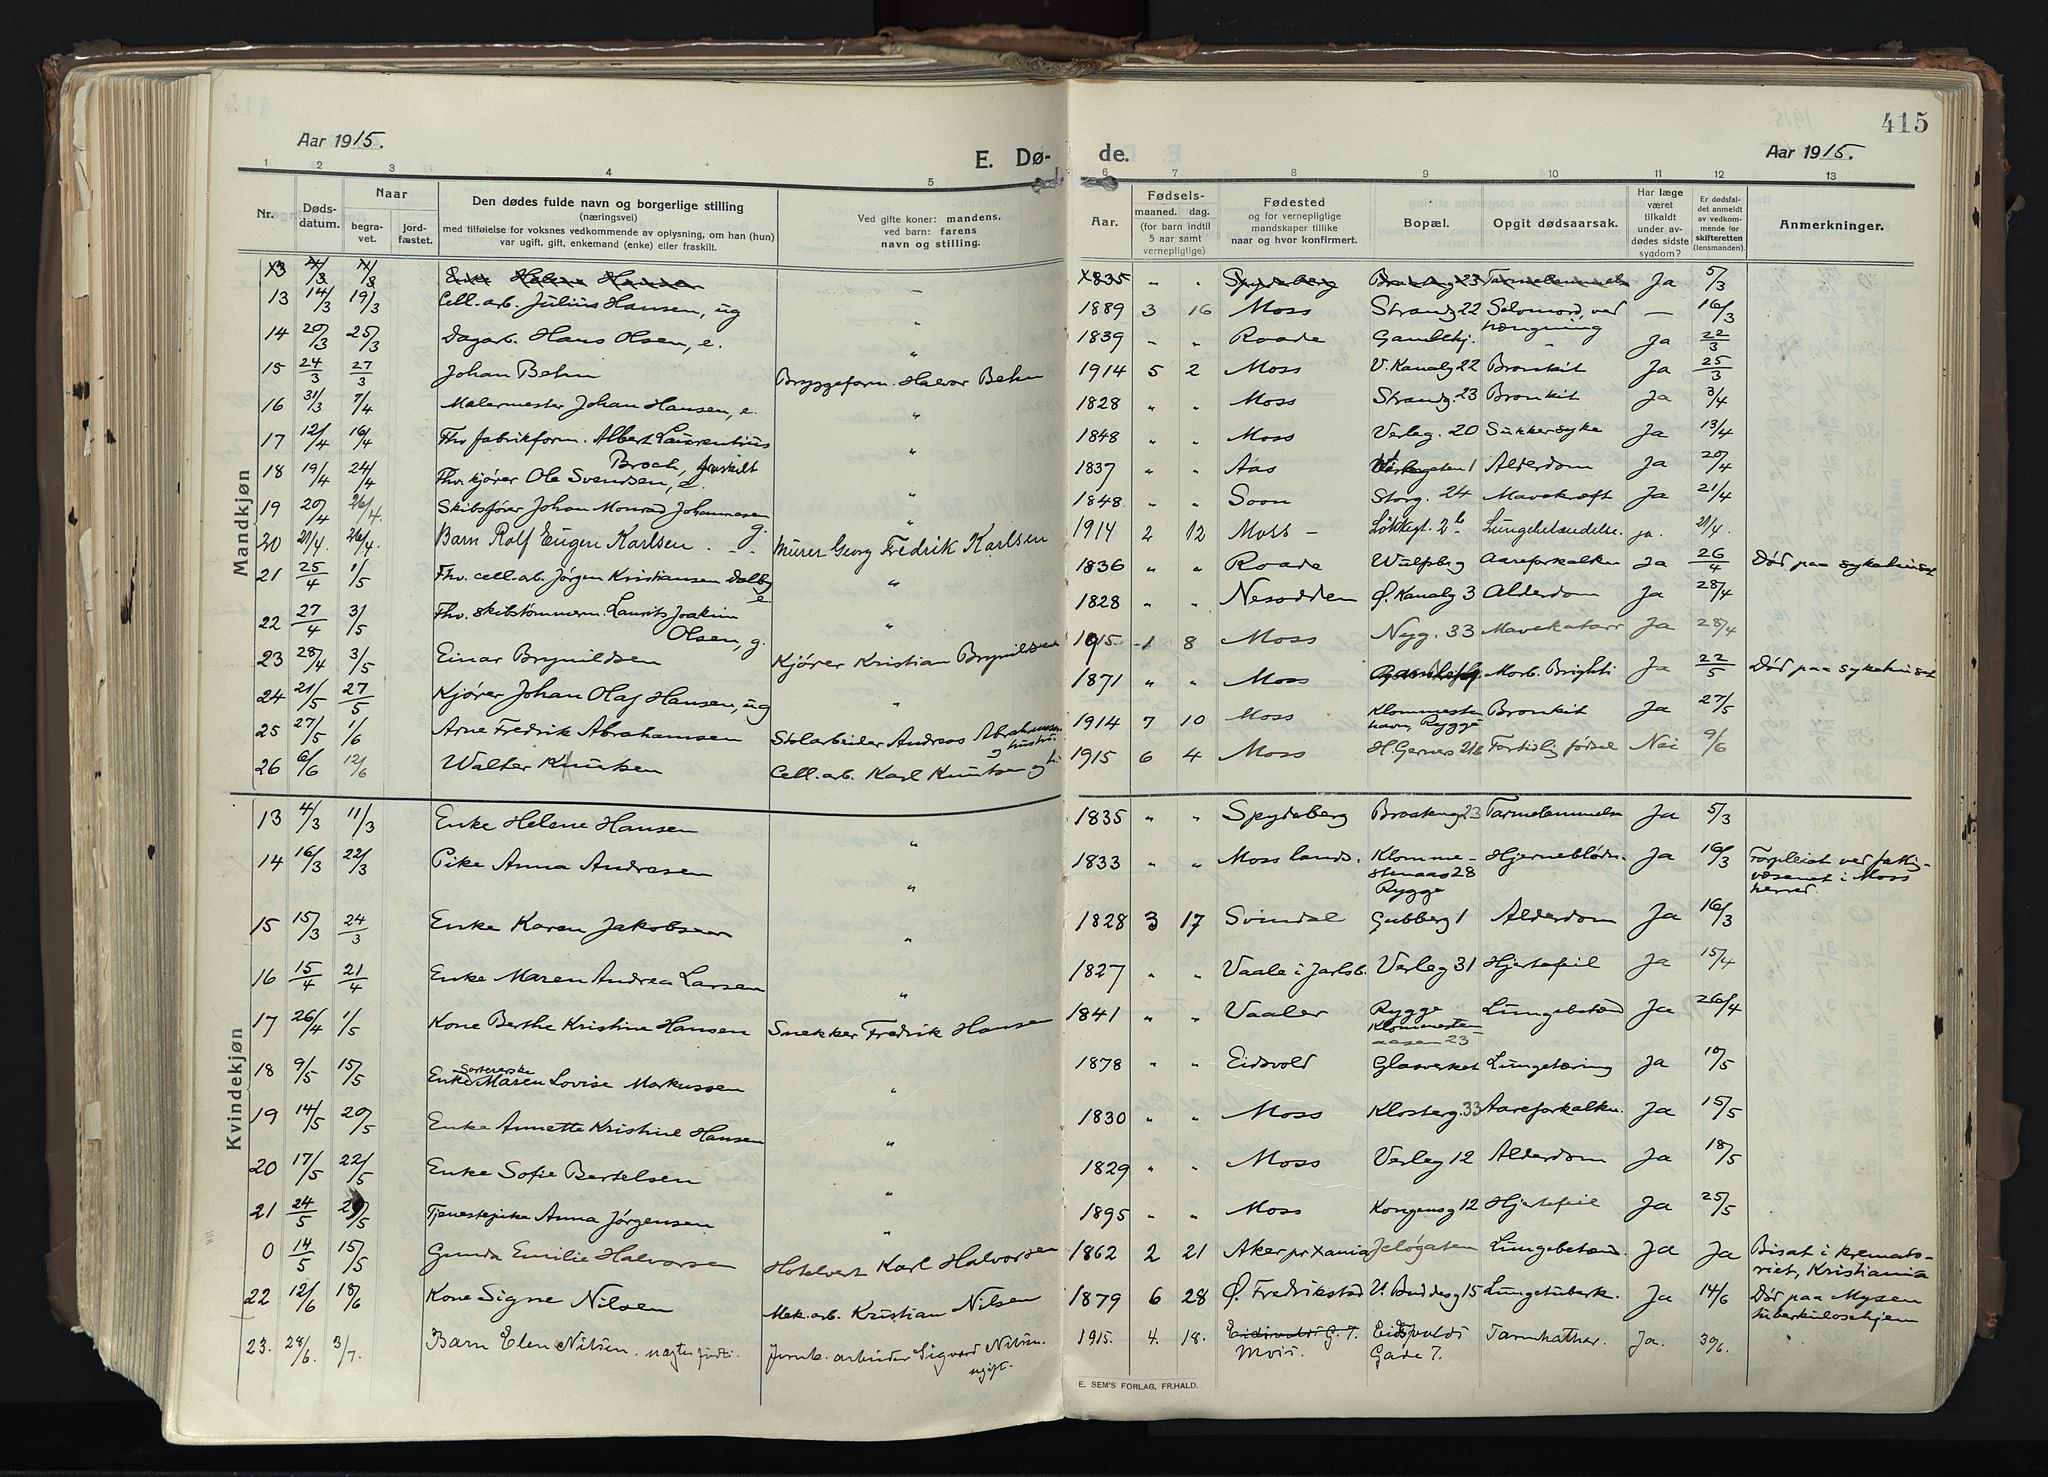 415
Aar 1915.
E. Dø-
de.
Aar 1915.
1 2 3 4 5 6 7 8 9 10 11 12 13
Nr.
Døds-
datum.
Naar
begra-
vet.
jord-
fæstet.
Den dødes fulde navn og borgerlige stilling
(næringsvei)
med tilføielse for voksnes vedkommende av oplysning, om han (hun)
var ugift, gift, enkemand (enke) eller fraskilt.
Ved gifte koner: mandens,
ved barn: farens
navn og stilling.
Aar.
Fødsels-
maaned. dag.
(for barn indtil
5 aar samt
vernepligtige)
Fødested
og for vernepligtige
mandskaper tillike
naar og hvor konfirmert.
Bopæl.
Opgit dødsaarsak.
Har læge
været
tilkaldt
under av-
dødes sidste
sygdom?
Er dødsfal-
det anmeldt
av vedkom-
mende for
skifteretten
(lensmanden).
Anmerkninger.
Mandkjøn
13 4/3 11/3 Enke Helene Hansen - 1835 " " Spydeberg Braateng 23 Tarmelammelse Ja 5/3
13 14/3 19/3 Cell.arb. Julius Hansen, ug " 1889 3 16 Moss Strandg 22 Selvmord, ved — 16/3
hængning
14 20/3 25/3 Dagarb. Hans Olsen, e. " 1839 - " Raade Gamlehj. - Ja 22/3
15 24/3 27/3 Johan Behn Bryggeform. Halvor Behn 1914 5 2 Moss V. Kanalg 22 Bronkit Ja 25/3
16 31/3 7/4 Malermester Johan Hansen, e. " 1828 " " Moss Strandg. 23 Bronkit Ja 3/4
17 12/4 16/4 Fhv fabrikform. Albert Laurentius " 1848 " " Moss Verleg. 20 Sukkersyke Ja 13/4
Broch, fraskilt
18 19/4 24/4 Fhv. kjører Ole Svendsen, e. " 1837 " " Aas 1 Alderdom Ja 20/4
19 20/4 26/4. Skibsfører Johan Monrad Johannesen " 1848 " " Soon Storg. 24 Mavekræft Ja 21/4
g.
20 21/4. 26/4. Barn Rolf Eugen Karlsen - " - Murer Georg Fredrik Karlsen 1914 2 12 Moss - Løkkegt. 2b Lungebetændelse. ja. 21/4.
21 25/4 1/5 Fhv. cell.arb. Jørgen Kristiansen Dalby " 1836 " " Raade Wulfsbg Aareforkalkn Ja 26/4 Død paa sykehuset
e
22 27/4 3/5 Fhv. skibstømmerm. Laurits Joakim " 1828 " " Nesodden Ø. Kanalg 3 Alderdom Ja 28/4
Olsen, g.
23 28/4 3/5 Einar Brynildsen Kjører Kristian Brynildsen 1915 -1 8 Moss Nyg. 33 Mavekatarr Ja 28/4
24 21/5 27/5 Kjører Johan Olaf Hansen, ug " 1871 " " Moss Morb. Brighti Ja 22/5 Død paa sykehuset
25 27/5 1/6 Arne Fredrik Abrahamsen Stolarbeider Andreas Abrahamsen 1914 7 10 Moss Klommesten Bronkit Ja 27/5
og hustru havn, Rygge
26 6/6 12/6 Walter Knutsen Cell.arb. Karl Knutsen og h. 1915 6 4 Moss H. Gerners 21b Fortidlig fødsel Nei 9/6
Kvindekjøn
13 4/3 11/3 Enke Helene Hansen " 1835 " " Spydeberg Braateng 23 Tarmelammelse Ja 5/3
14 16/3 22/3 Pike Anna Andresen " 1833 " " Moss lands. Klomme- Hjerneblødn. Ja 16/3 Forpleiet ved fattig-
stenaas 28 væsenet i Moss
Rygge herred.
15 15/3 24/3 Enke Karen Jakobsen " 1828 3 17 Svindal Gubberg 1 Alderdom Ja 16/3
16 15/4 21/4 Enke Maren Andrea Larsen " 1827 " " Vaale i Jarlsb. Verleg 31 Hjertefeil Ja 15/4
17 26/4 1/5 Kone Berthe Kristine Hansen Snekker Fredrik Hansen 1841 " " Vaaler Rygge Lungebetænd Ja 26/4
Klommesten-
aasen 23
Sorterske
18 9/5 15/5 Enke Maren Lovise Markussen " 1878 " " Eidsvold Glasverket Lungetæring Ja 10/5
19 14/5 20/5 Enke Annette Kristine Hansen " 1830 " " Moss Klosterg. 33 Aareforkalkn. Ja 15/5
20 17/5 22/5 Enke Sofie Bertelsen " 1829 " " Moss Verleg 12 Alderdom Ja 18/5
21 24/5 Tjenestepike Anna Jørgensen " 1895 " " Moss Kongensg 12 Hjertefeil Ja 25/5
0 14/5 15/5 Gunda Emilie Halvorsen Hotelvert Karl Halvorsen 1862 2 21 Aker pr Xania Jeløgaten Lungebetænd. Ja Ja Bisat i kremato-
riet, Kristiania
22 12/6 18/6 Kone Signe Nilsen Mek.arb. Kristian Nilsen 1879 6 28 Ø. Fredrikstad V. Buddesg 15 Lungetuberk. Ja 14/6 Død paa Mysen
tuberkulosehjem
23. 28/6. 3/7. Barn Elen Nilsen. uægte født. Jernb. arbeider Sigvard Nilsen. 1915. 4. 18. Eidsvolds G. 7. Eidsvolds Tarmkathar. Ja. 30/6.
ugift. Moss. Gade 7.
E. SEM'S FORLAG, FR.HALD.